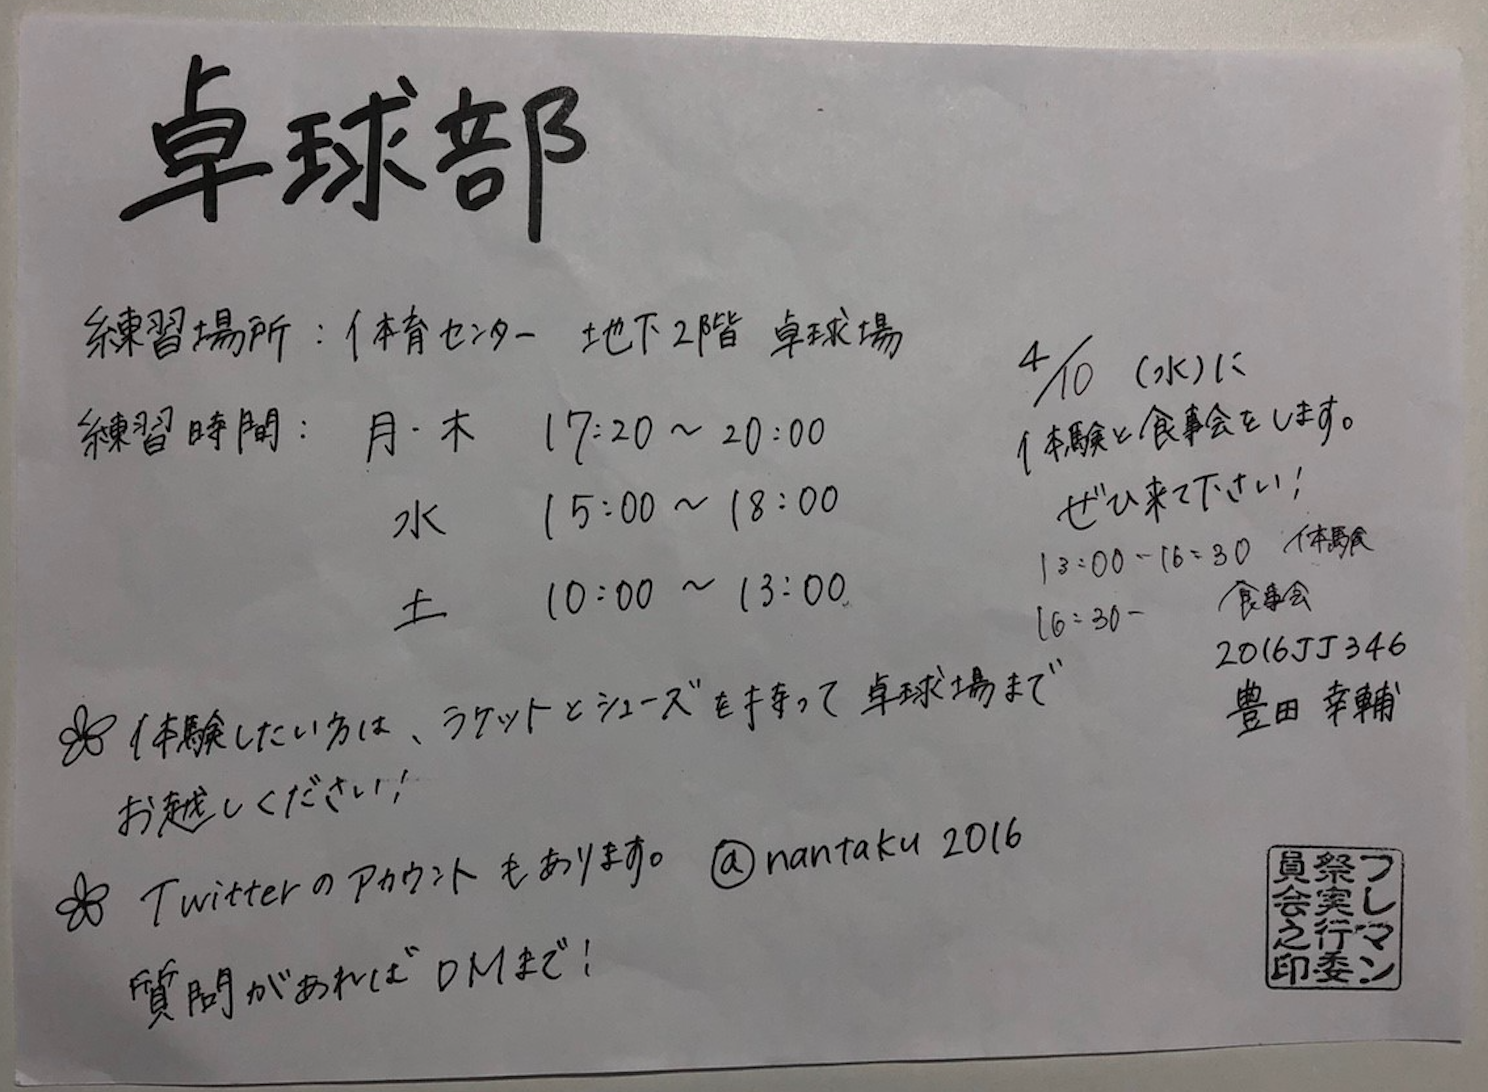 卓球部
練習場所：体育センター 地下2階 卓球場
練習時間： 月・木 17:20～20:00
水 15:00～18:00
土 10:00～13:00
4/10 (水)に
体験と食事会をします。
ぜひ来て下さい！
13:00-16:30 体験
16:30- 食事会
2016JJ346
豊田 幸輔
体験したい方は、ラケットとシューズを持って卓球場まで
お越しください！
Twitterのアカウントもあります。 @nantaku2016
質問があればDMまで！
フレマン
祭実行委
員会之印